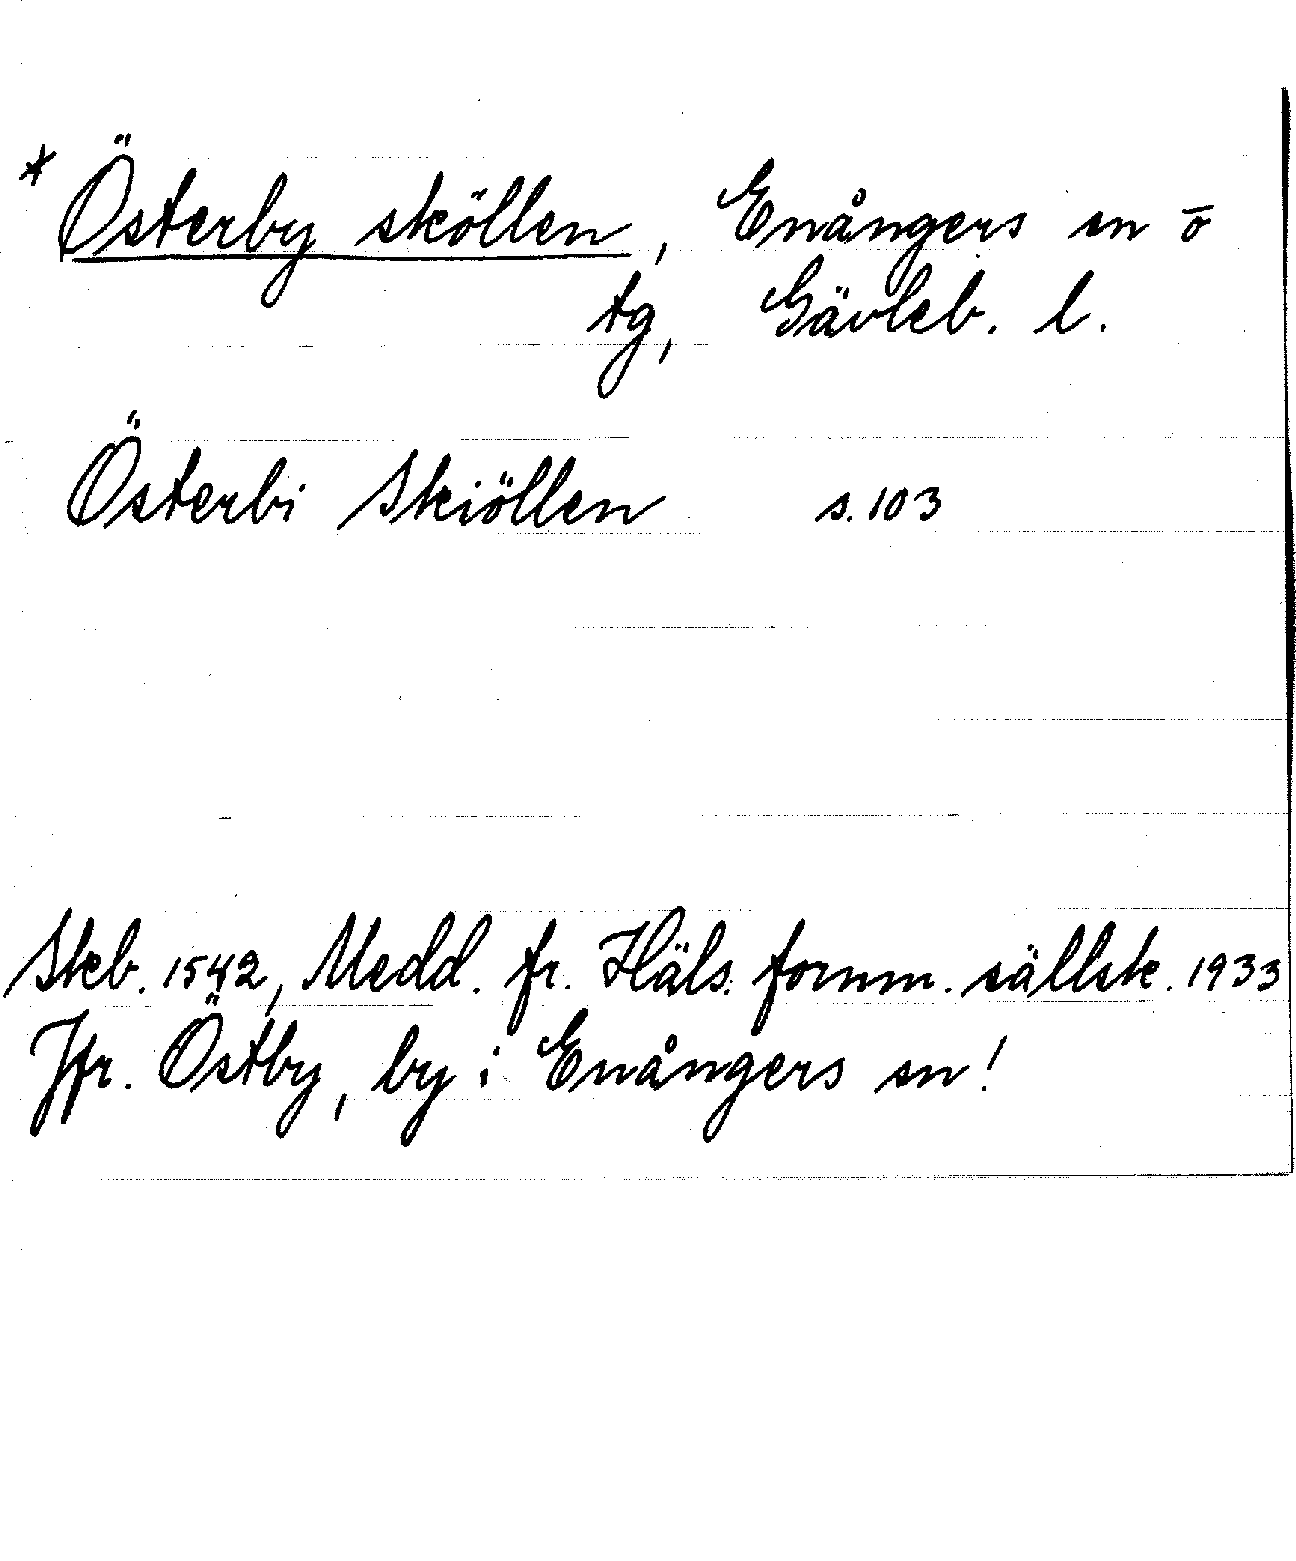 * Österby sköllen, Enångers sn ō
tg, Gävleb. l.
Österbi Skiöllen s. 103
Skeb. 1542, Medd. fr. Häls. fornm. sällsk. 1933
Jfr. Östby, by i Enångers sn!